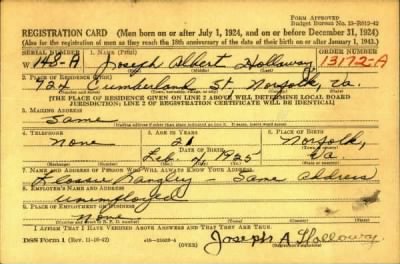 FORM APPROVED
Budget Bureau No. 33-R012-42
REGISTRATION CARD (Men born on or after July 1, 1924, and on or before December 31, 1924)
(Also for the registration of men as they reach the 18th anniversary of the date of their birth on or after January 1, 1943.)
SERIAL NUMBER 1. NAME (Print) ORDER NUMBER
W 145-A Joseph Albert Holloway 13172-A
2. PLACE OF RESIDENCE (Print)
724 Cumberland St. Norfolk, Va.
[THE PLACE OF RESIDENCE GIVEN ON LINE 2 ABOVE WILL DETERMINE LOCAL BOARD
JURISDICTION; LINE 2 OF REGISTRATION CERTIFICATE WILL BE IDENTICAL]
3. MAILING ADDRESS
Same
4. TELEPHONE 5. AGE IN YEARS 6. PLACE OF BIRTH
None 21 Norfolk,
Feb. 1925 Va
7. NAME AND ADDRESS OF PERSON WHO WILL ALWAYS KNOW YOUR ADDRESS
Langley - Same address
8. EMPLOYER'S NAME AND ADDRESS
unemployed
9. PLACE OF EMPLOYMENT OR BUSINESS
None
I AFFIRM THAT I HAVE VERIFIED ABOVE ANSWERS AND THAT THEY ARE TRUE.
DSS Form 1 (Rev. 11-16-42) (OVER) Joseph A Holloway